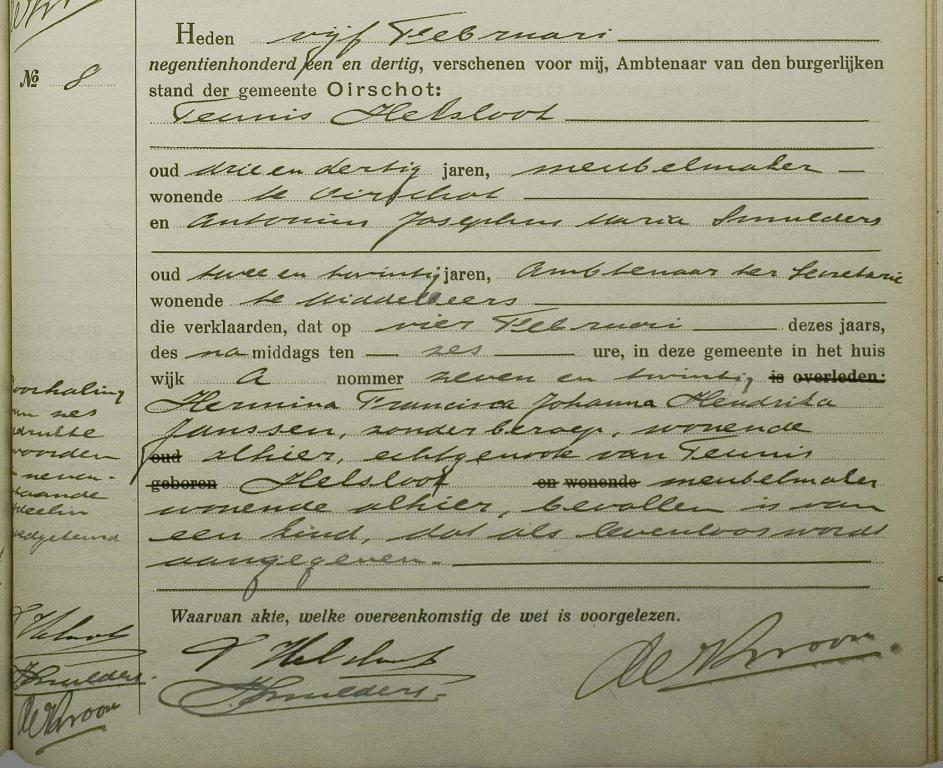 Heden vijf Februari
negentienhonderd een en dertig, verschenen voor mij, Ambtenaar van den burgerlijken
№ 8
stand der gemeente Oirschot:
Teunis Helsloot
oud drie en dertig jaren, meubelmaker
wonende te Oirschot
en Antonius Josephus Maria Smulders
oud twee en twintig jaren, Ambtenaar ter Secretarie
wonende te Middelbeers
die verklaarden, dat op vier Februari dezes jaars,
des na middags ten zes ure, in deze gemeente in het huis
wijk A nommer zeven en twintig is overleden:
Hermina Francisca Johanna Hendrika
Janssen, zonder beroep, wonende
oud alhier, echtgenoote van Teunis
geboren Helsloot en wonende meubelmaker
wonende alhier, bevallen is van
een kind, dat als levenloos wordt
aangegeven.
Waarvan akte, welke overeenkomstig de wet is voorgelezen.
T Helsloot
Smulders
de Kroon
oorhaling
an zes
drukte
oorden
neven-
taande
edgekeurd
T Helsloot
Smulders
de Kroon